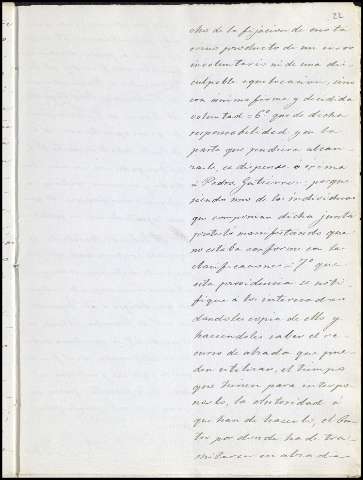 22
cho de la fijacion de cuota
como producto de un error
involuntario ni de una dis-
culpable equivocacion, sino
con animo firme y decidida
voluntad = 6º que de dicha
responsabilidad y en la
parte que pudiera alcan-
zarle, se dispense o exima
a Pedro Gutierrez porque
siendo uno de los individuos
que componian dicha junta
protestó manifestando que
no estaba conforme con la
clasificacion = 7º que
esta providencia se noti-
fique a los interesados
dandoles copia de ella y
haciendoles saber el re-
curso de alzada que pue-
den utilizar, el tiempo
que tienen para interpo-
nerlo, la autoridad á
que han de hacerlo, el
por donde ha de tra-
mitarse en alzada